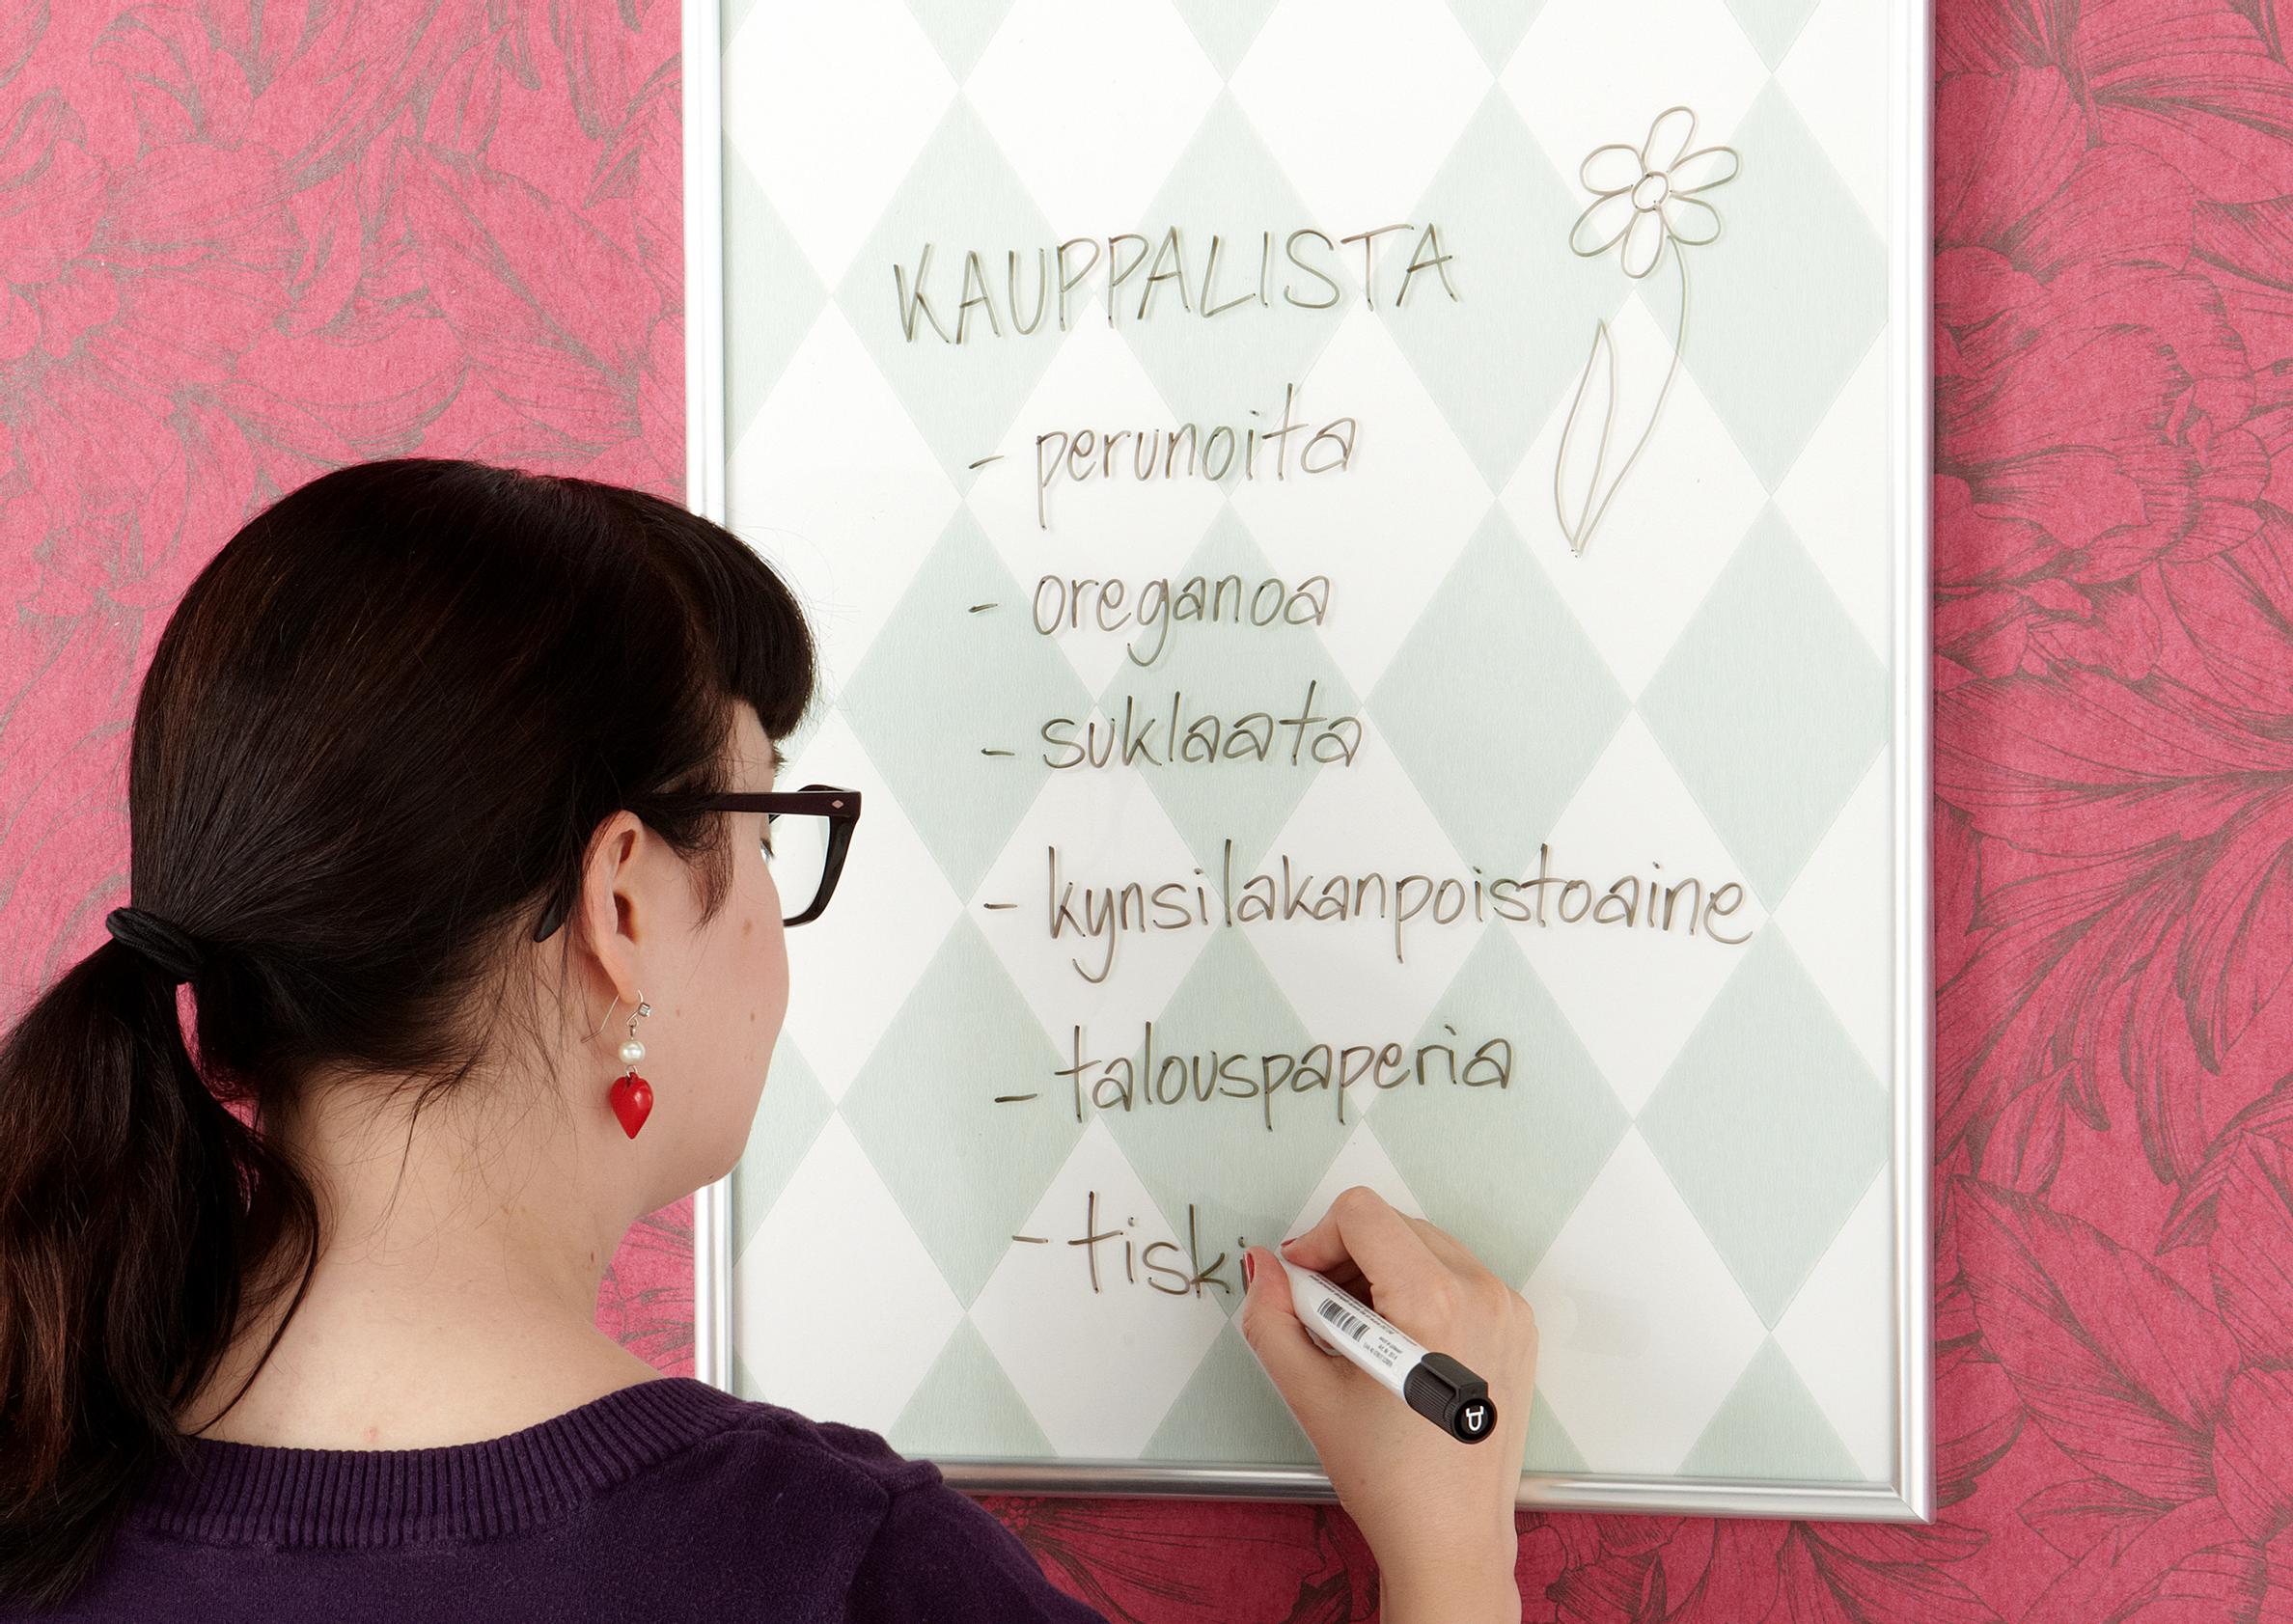 KAUPPALISTA
- perunoita
- oreganoa
- suklaata
- kynsilakanpoistoaine
- talouspaperia
- tiski